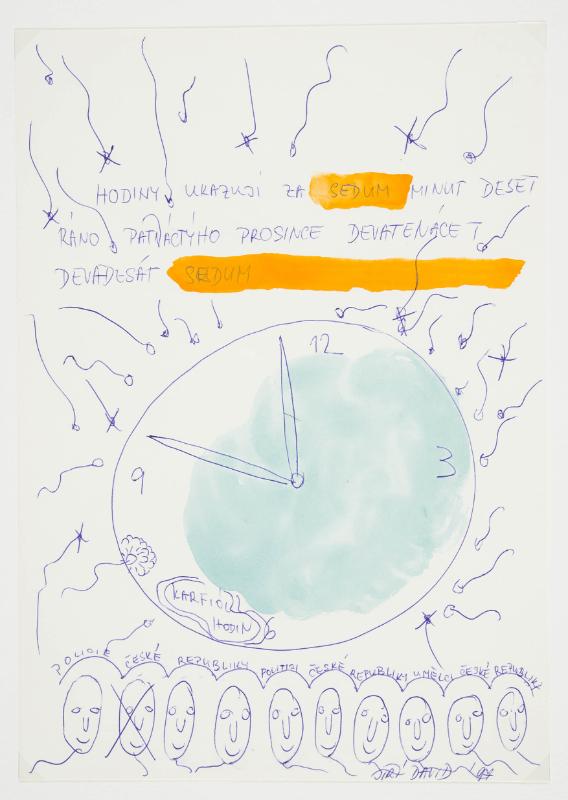 HODINY UKAZUJÍ ZA SEDUM MINUT DESET
RÁNO PATNÁCTÝHO PROSINCE DEVATENÁCET
DEVADESÁT SEDUM
12
3
9
6
KARFIÓL
HODIN
POLICIE ČESKÉ REPUBLIKY POLITICI ČESKÉ REPUBLIKY UMĚLCI ČESKÉ REPUBLIKY
JIŘÍ DAVID '97